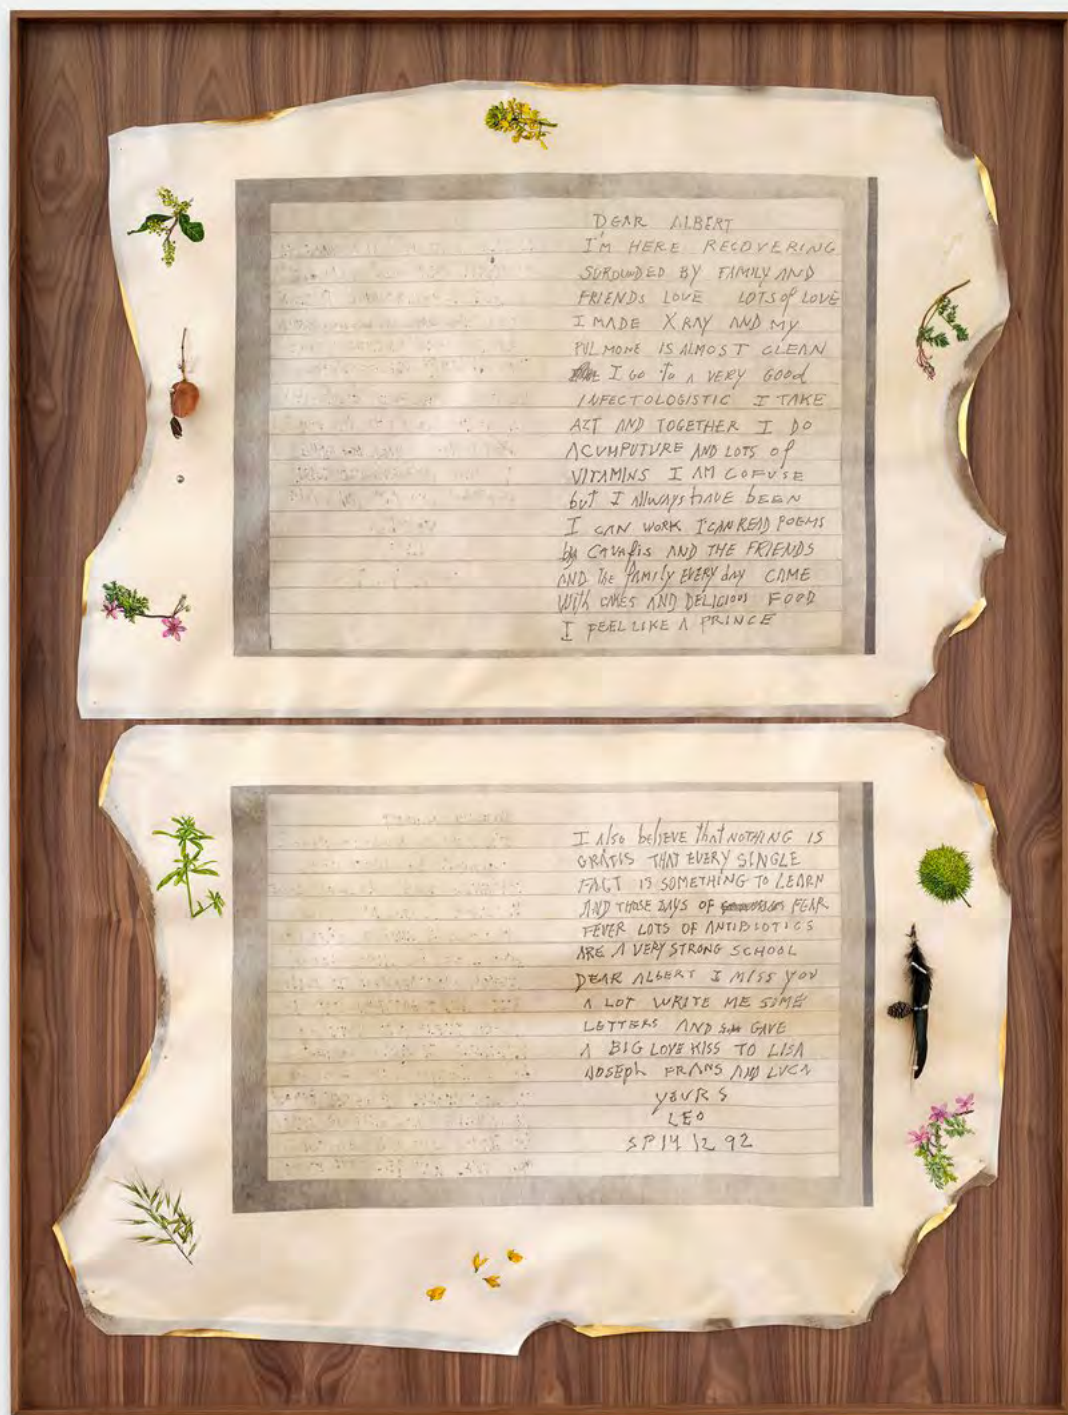 DEAR ALBERT
I'M HERE RECOVERING
SUROUNDED BY FAMILY AND
FRIENDS LOVE LOTS of LOVE
I MADE X RAY AND MY
PULMONE IS ALMOST CLEAN
I GO to A VERY GOOd
INFECTOLOGISTIC I TAKE
AZT AND TOGETHER I DO
ACUMPUTURE AND LOTS of
VITAMINS I AM COFUSE
but I AllwAys hAVE bEEN
I CAN WORK I CAN READ POEMS
by CAVAfis AND THE FRIENDS
AND the fAmily EVERY dAy CAME
With CAKES AND DELICIOUS FOOD
I FEEL LIKE A PRINCE
I Also beliEVE that NOTHING IS
GRATIS THAT EVERY SINGLE
FACT IS SOMETHING TO LEARN
AND THOSE DAYS OF FEAR
FEVER LOTS OF ANTIBIOTICS
ARE A VERY STRONG SCHOOL
DEAR ALBERT I MISS YOU
A LOT WRITE ME SOME
LETTERS AND GAVE
A BIG LOVE KISS TO LISA
JOSEPh FRANS AND LUCA
yOURS
LEO
SP 14 12 92